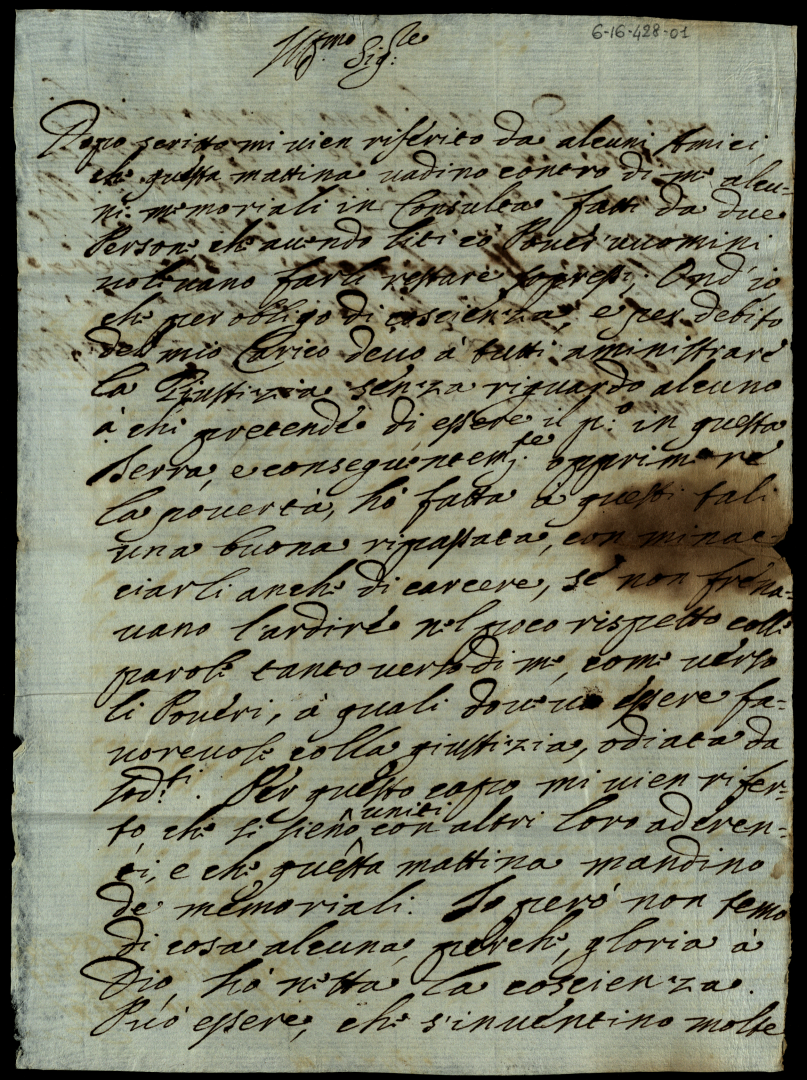 6-16-428-01
Ill.mo Sig.re
Dopo scritto mi vien riferito da alcuni Amici,
che questa mattina vadino contro di me alcu-
ni memoriali in Consulta fatti da due
Persone che avendo liti co' Poveri uomini
volevano farli restare soppressi; Ond'io,
che per obligo di coscienza, e per debito
del mio Carico devo à tutti aministrare
la Giustizia senza riguardo alcuno
à chi pretende di essere il p.o in questa
Terra, e conseguentem.te opprimere
la povertà, hò fatta à questi tali
una buona ripassata, con minac-
ciarli anche di carcere, se non frena-
vano l'ardire nel poco rispetto colle
parole tanto verso di me, come verso
li Poveri, à quali doveva essere fa-
vorevole colla giustizia, odiata da
sod.ti. Per questo capo mi vien rifer-
to, che si sieno uniti con altri loro aderen-
ti, e che questa mattina mandino
de memoriali. Io però non temo
di cosa alcuna, perche, gloria à
Dio, hò netta la coscienza.
Può essere, che s'inventino molte